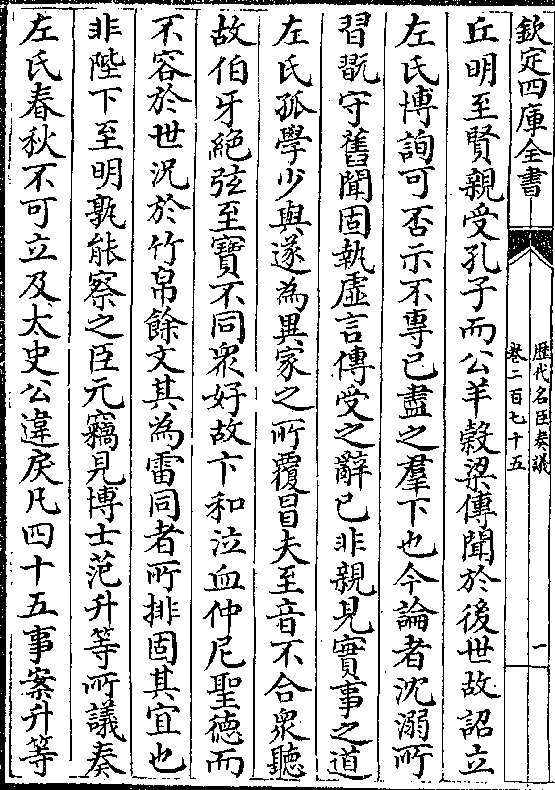 欽定四庫全書
歷代名臣奏議
卷二百七十五
一
丘明至賢親受孔子而公羊穀梁傳聞於後世故詔立
左氏博詢可否示不專已盡之羣下也今論者沈溺所
習翫守舊聞固執虛言傳受之辭已非親見實事之道
左氏孤學少與遂為異家之所覆冒夫至音不合衆聽
故伯牙絶弦至寶不同衆好故卞和泣血仲尼聖德而
不容於世況於竹帛餘文其為雷同者所排固其宜也
非陛下至明孰能察之臣元竊見博士范升等所議奏
左氏春秋不可立及太史公違戾凡四十五事案升等